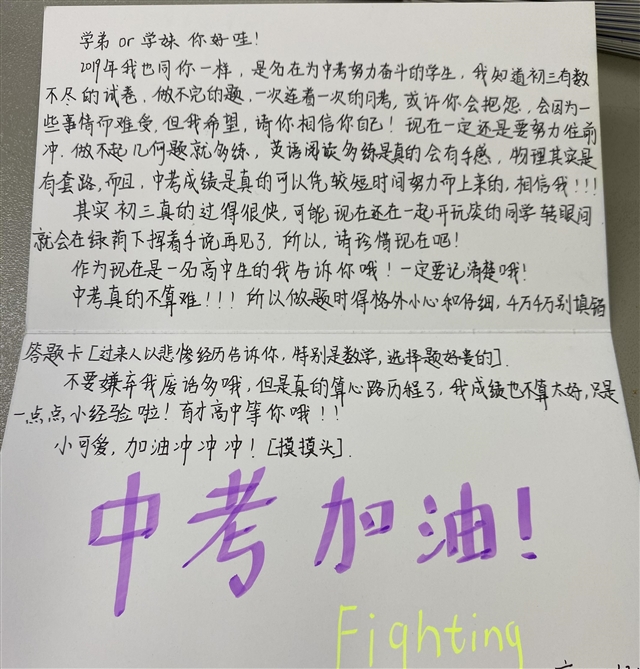 学弟 or 学妹 你好哇！
2019年我也同你一样，是名在为中考努力奋斗的学生，我知道初三有数
不尽的试卷，做不完的题，一次连着一次的月考，或许你会抱怨，会因为一
些事情而难受，但我希望，请你相信你自己！现在一定还是要努力往前
冲．做不起几何题就多练，英语阅读多练是真的会有手感，物理其实是
有套路，而且，中考成绩是真的可以凭较短时间努力而上来的，相信我！！！
其实初三真的过得很快，可能现在还在一起开玩笑的同学转眼间
就会在绿荫下挥着手说再见了，所以，请珍惜现在吧！
作为现在是一名高中生的我告诉你哦！一定要记清楚哦！
中考真的不算难！！！所以做题时得格外小心和仔细，千万千万别填错
答题卡［过来人以悲惨经历告诉你，特别是数学，选择题好贵的］．
不要嫌弃我废话多哦，但是真的算心路历程了，我成绩也不算太好，只是
一点点小经验啦！育才高中等你哦！！
小可爱，加油冲冲冲！［摸摸头］．
中考加油！
Fighting